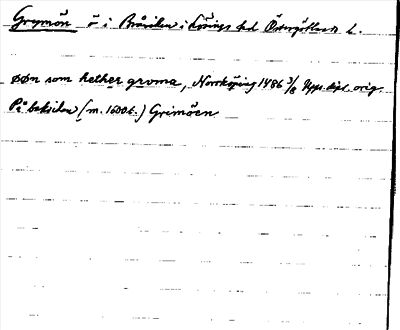 Grymön ö i Bråviken i Lösings hd Östergötlands l.
øøn som hether groma, Norrköping 1486 3/8 Upps. dipl. orig.
På baksidan (m. 1600t.) Grimöen